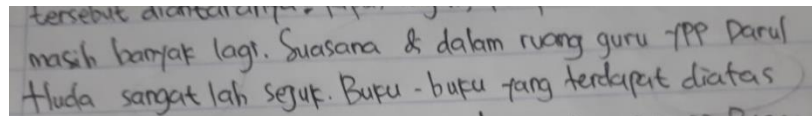 tersebut diantaranya
masih banyak lagi. Suasana di dalam ruang guru YPP Darul
Huda sangat lah sejuk. Buku - buku yang terdapat diatas